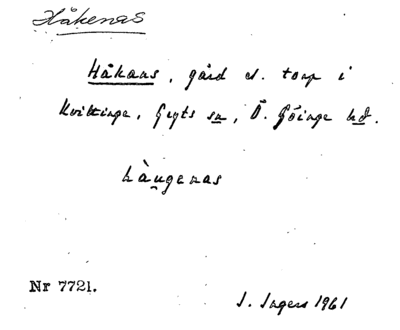 Håkenas
Håkans, gård el. torp i
Kvittinge, Gryts sn, Ö. Göinge hd.
hàu̯genas
Nr 7721.
I. Ingers 1961